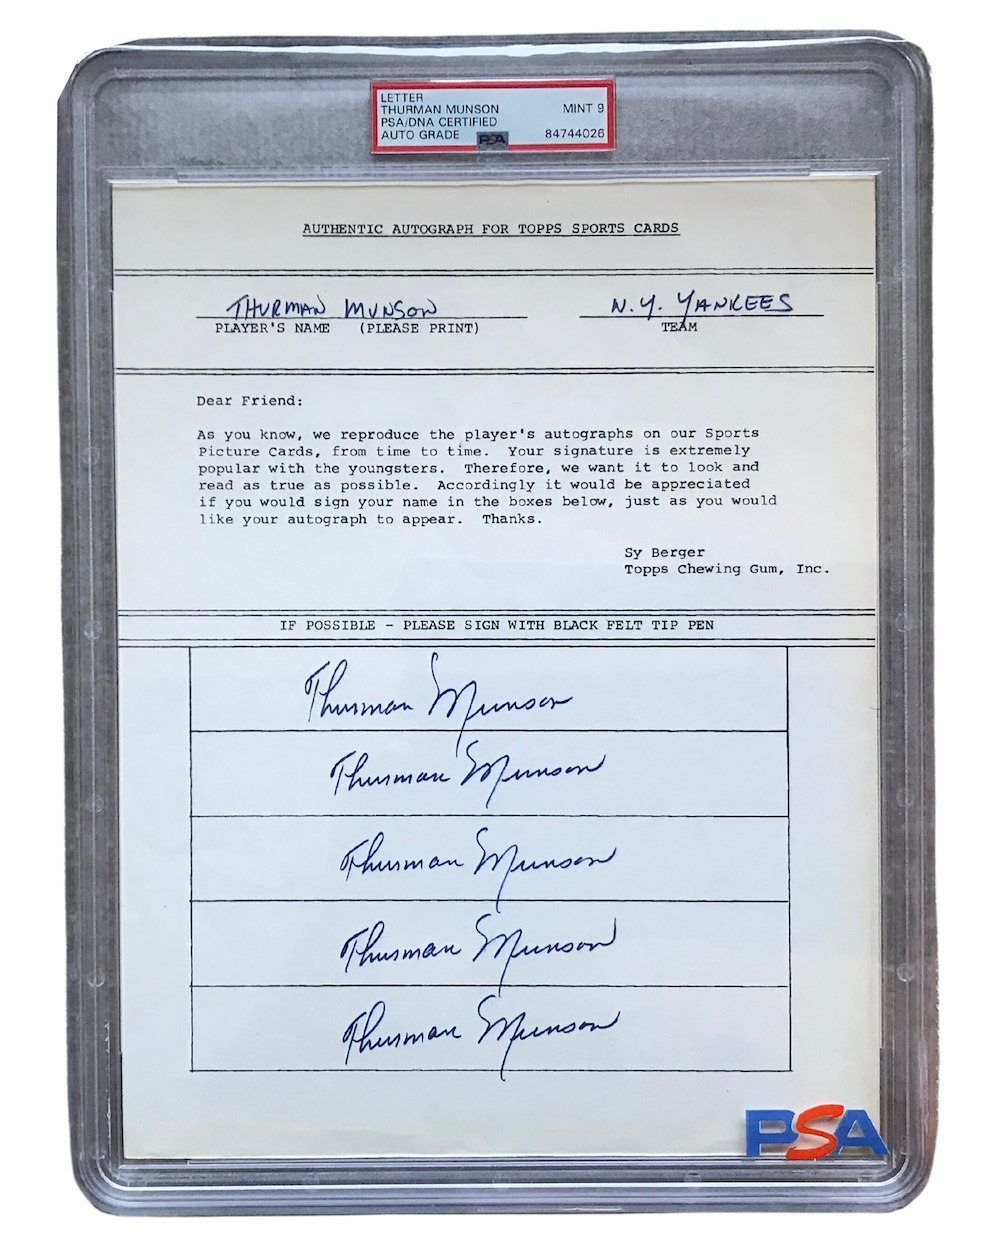 LETTER
THURMAN MUNSON MINT 9
PSA/DNA CERTIFIED
AUTO GRADE PSA 84744026
AUTHENTIC AUTOGRAPH FOR TOPPS SPORTS CARDS
THURMAN MUNSON N.Y. YANKEES
PLAYER'S NAME (PLEASE PRINT) TEAM
Dear Friend:
As you know, we reproduce the player's autographs on our Sports
Picture Cards, from time to time. Your signature is extremely
popular with the youngsters. Therefore, we want it to look and
read as true as possible. Accordingly it would be appreciated
if you would sign your name in the boxes below, just as you would
like your autograph to appear. Thanks.
Sy Berger
Topps Chewing Gum, Inc.
IF POSSIBLE - PLEASE SIGN WITH BLACK FELT TIP PEN
Thurman Munson
Thurman Munson
Thurman Munson
Thurman Munson
Thurman Munson
PSA